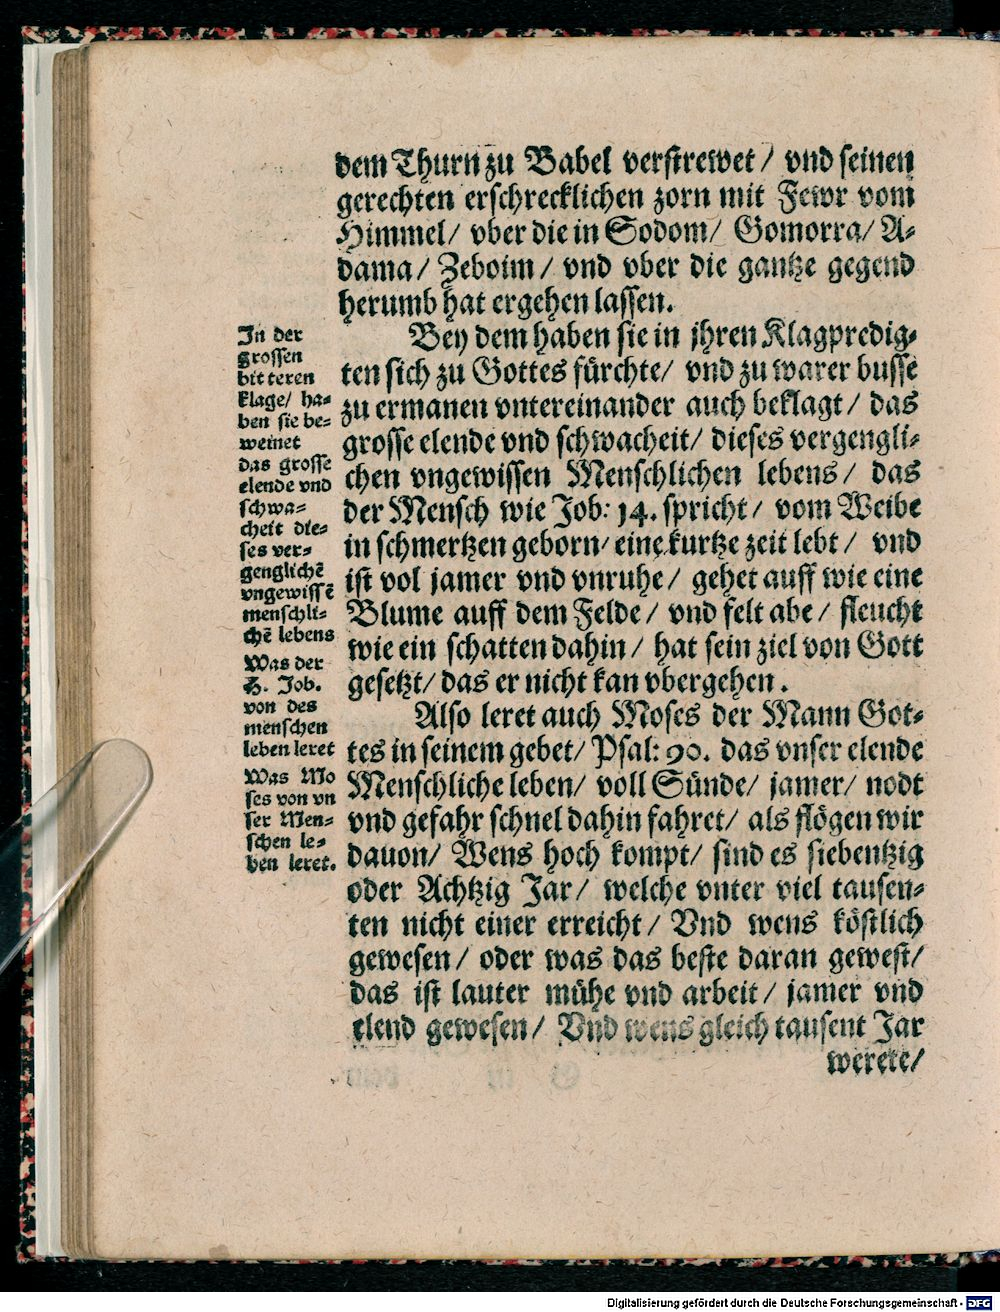 dem Thurn zu Babel verstrewet / vnd seinen
gerechten erschrecklichen zorn mit Fewr vom
Himmel / vber die in Sodom / Gomorra / A-
dama / Zeboim / vnd vber die gantze gegend
herumb hat ergehen lassen.
Bey dem haben sie in jhren Klagpredig-
ten sich zu Gottes fürchte / vnd zu warer busse
zu ermanen vntereinander auch beklagt / das
grosse elende vnd schwacheit / dieses vergengli-
chen vngewissen Menschlichen lebens / das
der Mensch wie Job: 14. spricht / vom Weibe
in schmertzen geborn / eine kurtze zeit lebt / vnd
ist vol jamer vnd vnruhe / gehet auff wie eine
Blume auff dem Felde / vnd felt abe / fleucht
wie ein schatten dahin / hat sein ziel von Gott
gesetzt / das er nicht kan vbergehen.
Also leret auch Moses der Mann Got-
tes in seinem gebet / Psal: 90. das vnser elende
Menschliche leben / voll Sünde / jamer / nodt
vnd gefahr schnel dahin fahret / als flögen wir
dauon / Wens hoch kompt / sind es siebentzig
oder Achtzig Jar / welche vnter viel tausen-
ten nicht einer erreicht / Vnd wens köstlich
gewesen / oder was das beste daran gewest /
das ist lauter mühe vnd arbeit / jamer vnd
elend gewesen / Vnd wens gleich tausent Jar
werete /
In der
grossen
bitteren
klage / ha-
ben sie be-
weinet
das grosse
elende vnd
schwa-
cheit die-
ses ver-
genglichē
vngewissē
menschli-
chē lebens
Was der
H. Job.
von des
menschen
leben leret
Was Mo
ses von vn
ser Men-
schen le-
ben leret.
Digitalisierung gefördert durch die Deutsche Forschungsgemeinschaft - DFG